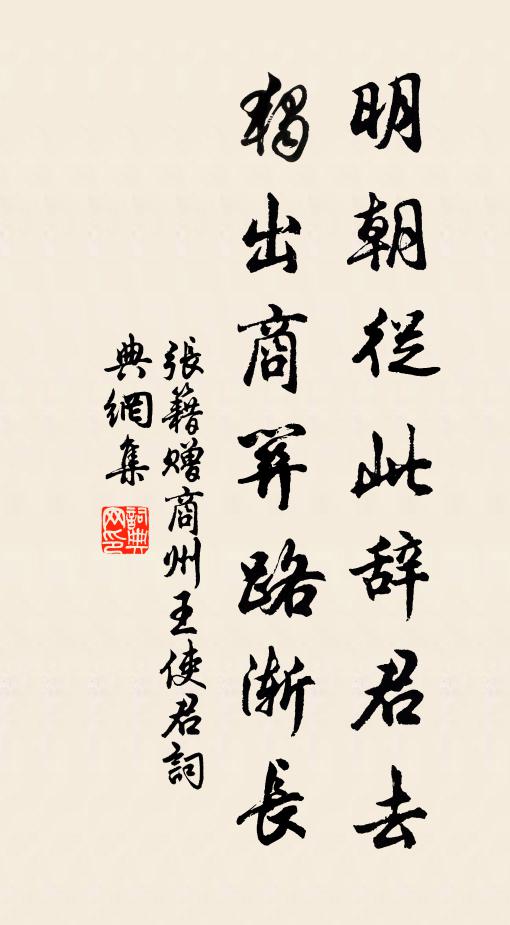 明朝從此辞君去
獨出商關路漸長
張籍贈商州王使君詞
典網集
詞典
网印